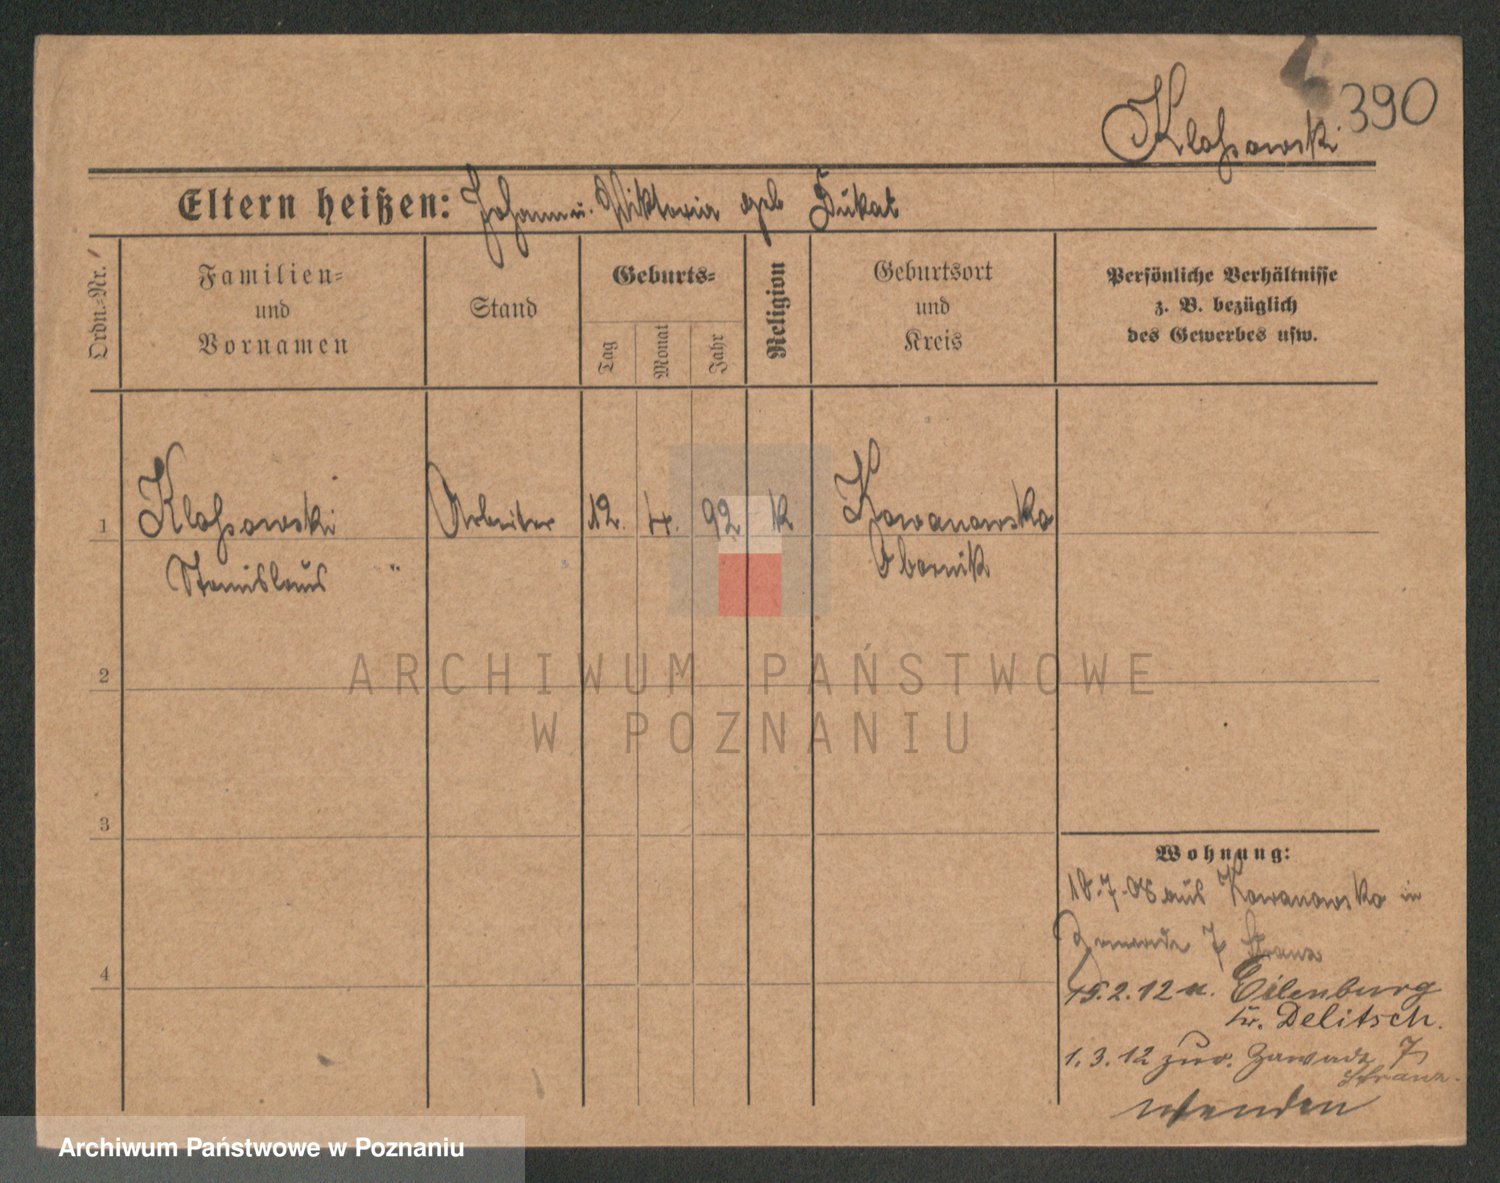 390
Kloßowski
Eltern heißen: Johann u. Wiktoria geb Dukat
Ordn.-Nr.
Familien=
und
Vornamen
Stand
Geburts=
Tag
Monat
Jahr
Religion
Geburtsort
und
Kreis
Persönliche Verhältnisse
z. B. bezüglich
des Gewerbes usw.
1 Kloßowski Arbeiter 12. 4. 92 k Kowanowsko
Stanislaus " Obornik
ARCHIWUM PAŃSTWOWE
W POZNANIU
2
3
4
Wohnung:
10.7.08 aus Kowanowsko in
7
15.2.12 n. Eilenburg
kr. Delitsch.
1.3.12 zur. Zawade 7
wenden
Archiwum Państwowe w Poznaniu